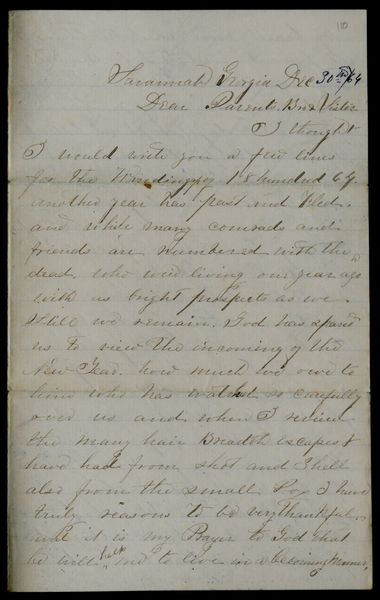 110
Savannah Georgia Dec 30th/64
Dear Parents Bro & Sister
I thought
I would write you a few lines
for the Winding up of 18 hundred 64.
another year has past and fled.
and while many comrads and
friends are numbered with the
dead. who were living one year ago
with as bright prospects as we
still we remain. God has spared
us to view the incoming of the
New Year. how much we owe to
him who has watched so carefully
over us and when I review
the many hair Breadth escapes I
have had from shot and Shell
also from the small Pox I have
truly reasons to be very thankful
and it is my Prayer to God that
he will help me to live in a becoming manner,